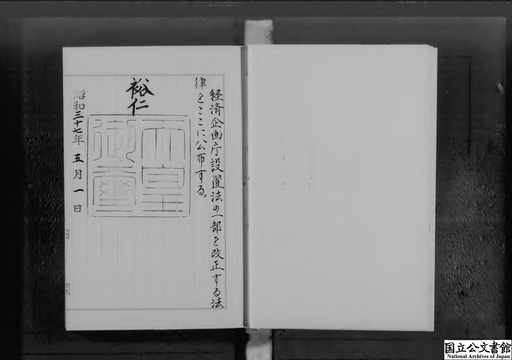 経済企画庁設置法の一部を改正する法
律をここに公布する。
裕仁
天皇
御璽
昭和三十七年 五月 一日
国立公文書館
National Archives of Japan